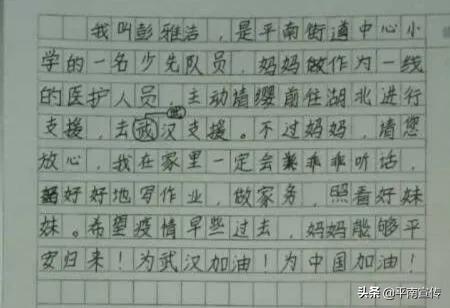 我叫彭雅洁，是平南街道中心小
学的一名少先队员，妈妈做作为一线
的医护人员，主动请缨前往湖北进行
支援，去武汉支援。不过妈妈，请您
放心，我在家里一定会乖乖听话，
好好地写作业，做家务，照看好妹
妹。希望疫情早些过去，妈妈能够平
安归来！为武汉加油！为中国加油！
头条 @平南宣传